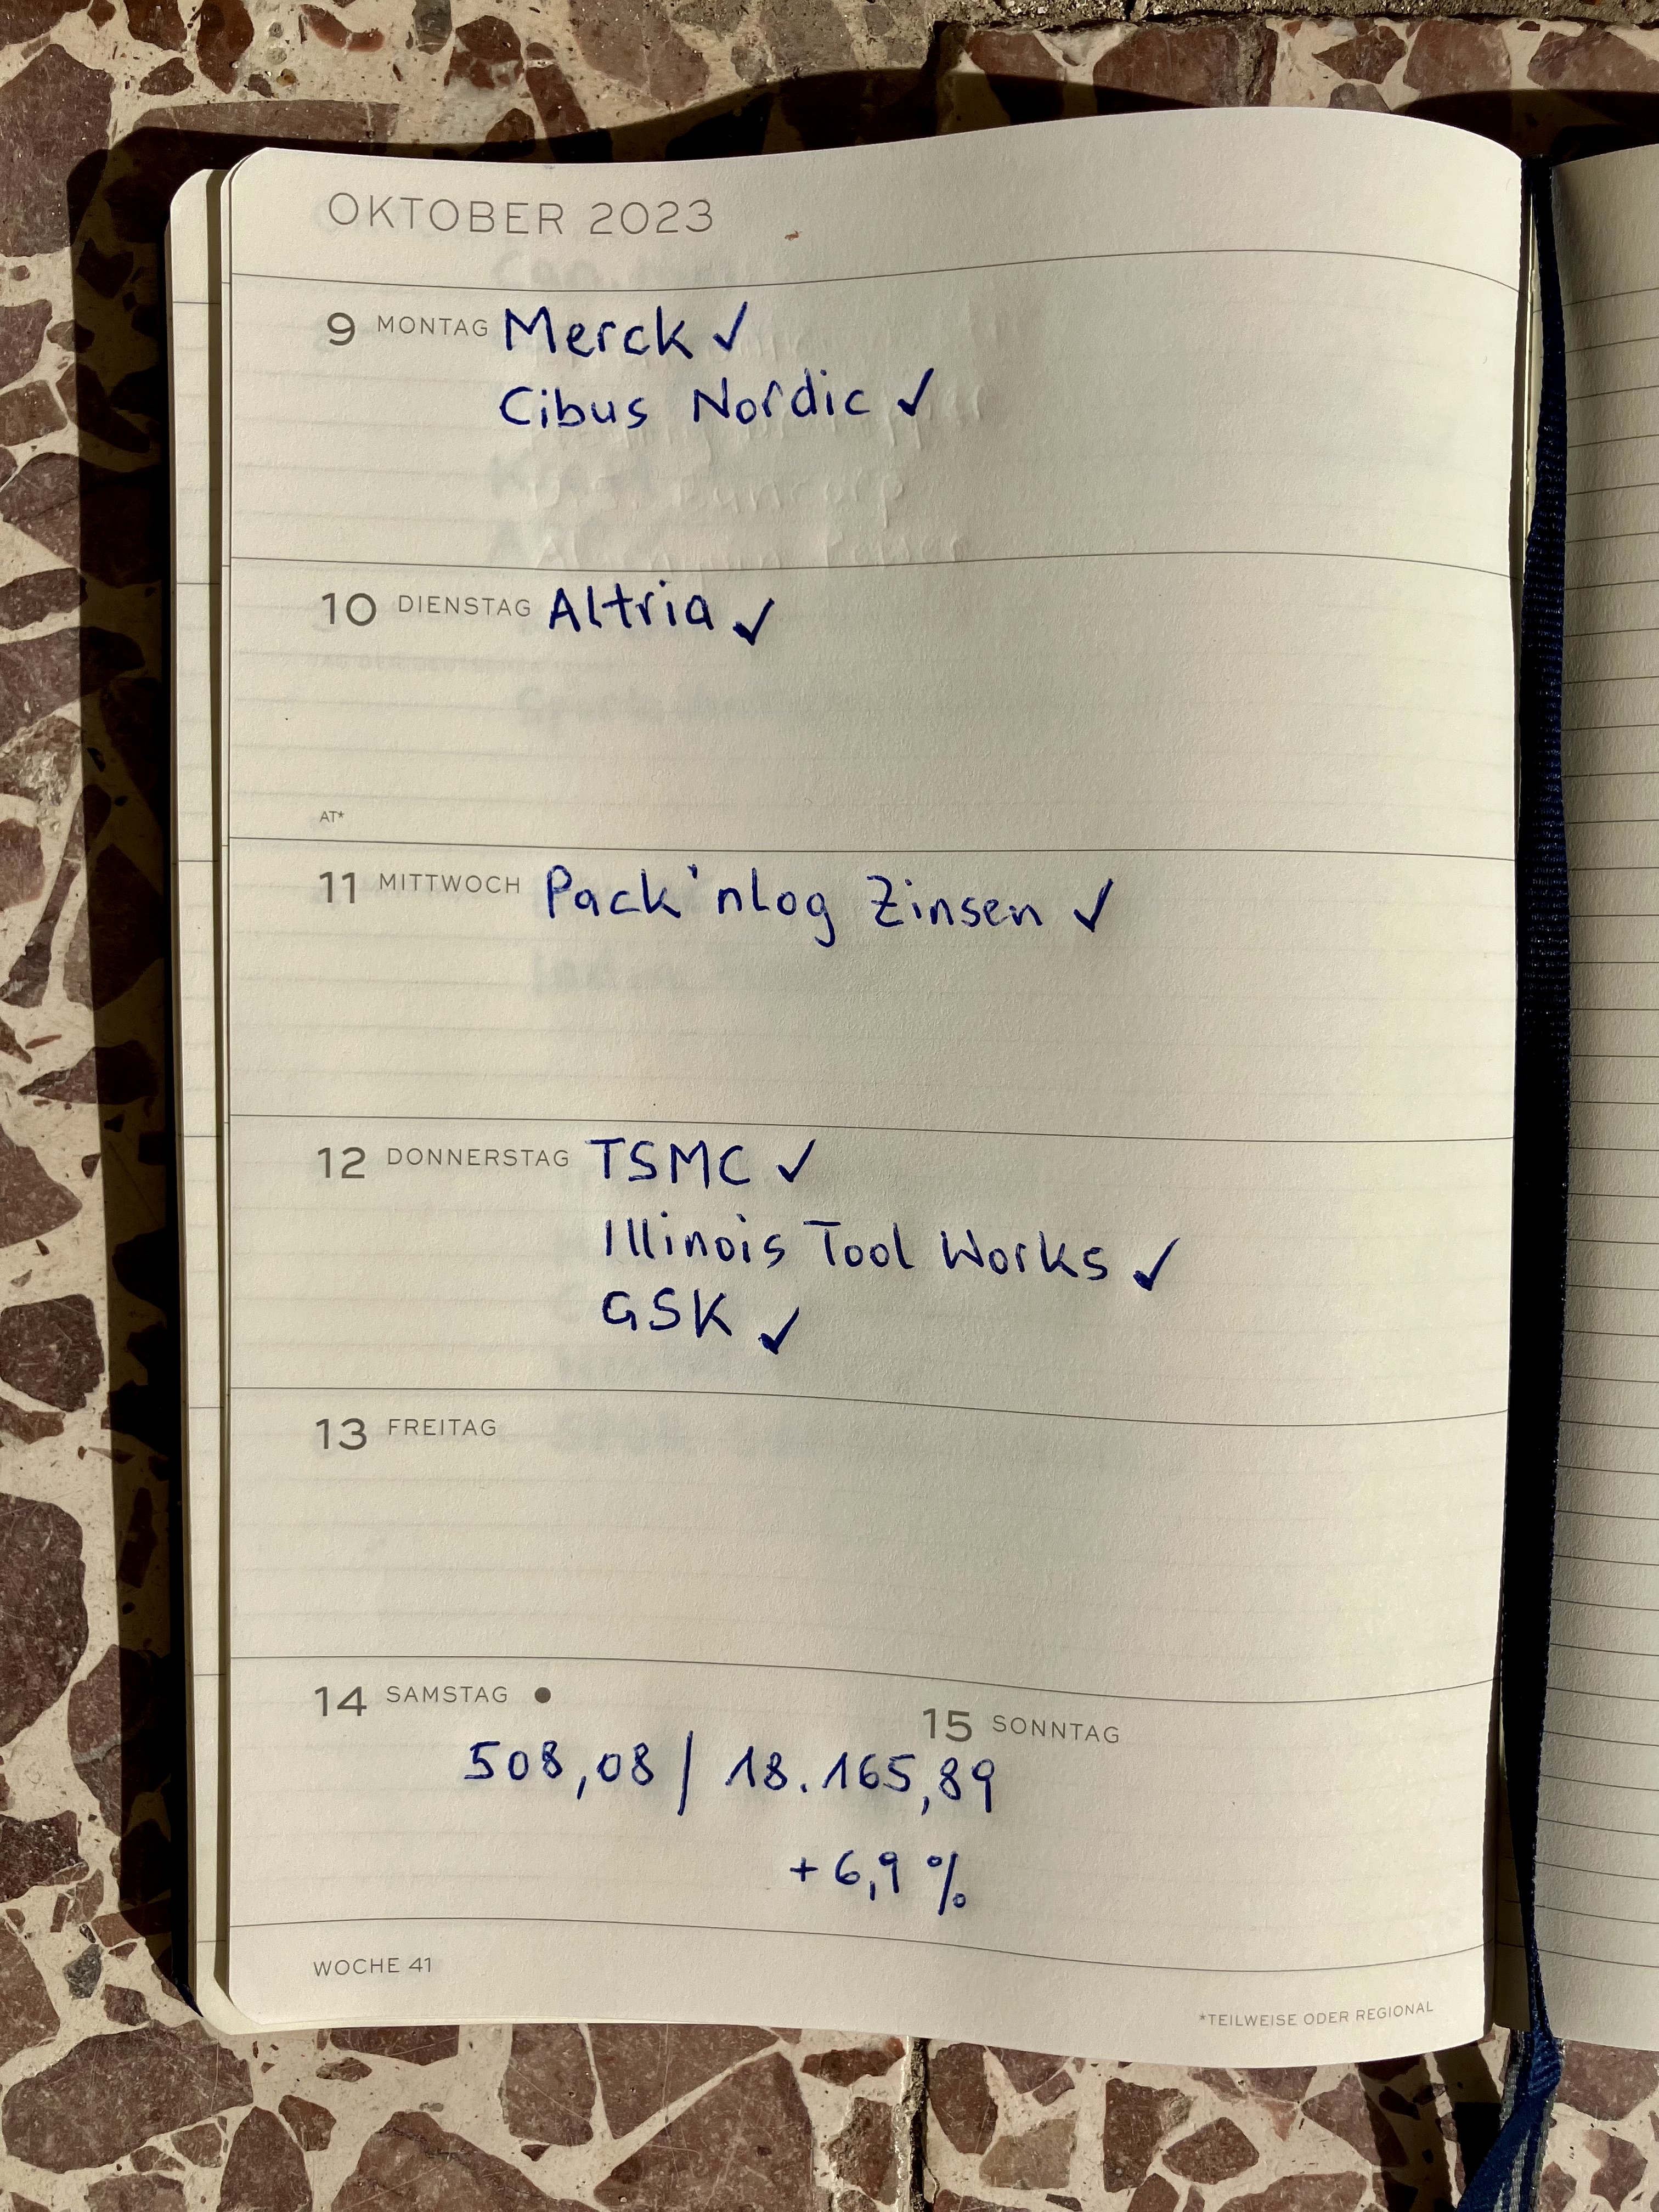 OKTOBER 2023
9 MONTAG Merck ✓
Cibus Nordic ✓
10 DIENSTAG Altria ✓
AT*
11 MITTWOCH Pack'nlog Zinsen ✓
12 DONNERSTAG TSMC ✓
Illinois Tool Works ✓
GSK ✓
13 FREITAG
14 SAMSTAG ●
15 SONNTAG
508,08 / 18.165,89
+6,9 %
WOCHE 41
*TEILWEISE ODER REGIONAL